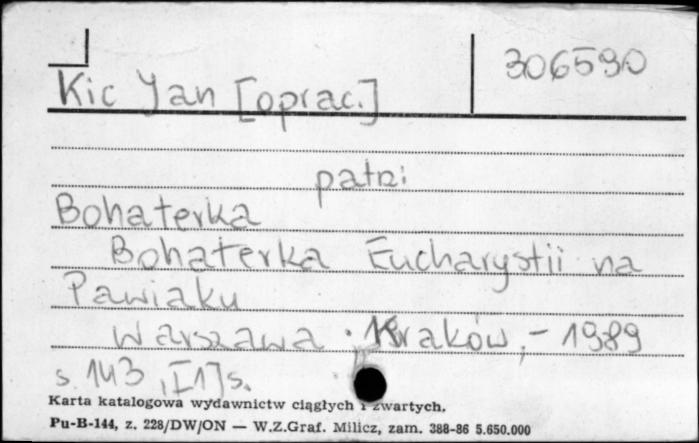 306590
Kic Jan [oprac.]
patrz:
Bohaterka
Bohaterka Eucharystii na
Pawiaku
Warszawa · Kraków, - 1989
s. 143, [1] s.
Karta katalogowa wydawnictw ciągłych i zwartych.
Pu-B-144, z. 228/DW/ON — W.Z.Graf. Milicz, zam. 388-86 5.650.000